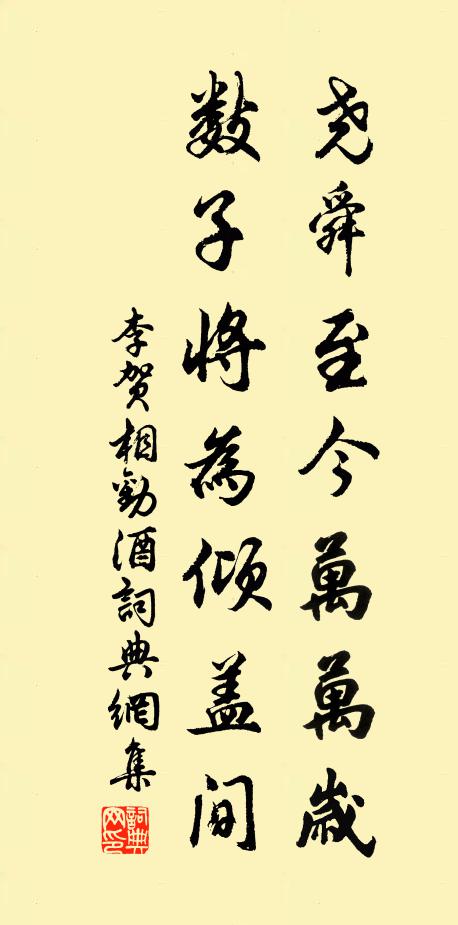 尧舜至今萬萬歲
數子將為傾蓋間
李贺相勸酒詞典網集
詞典網印